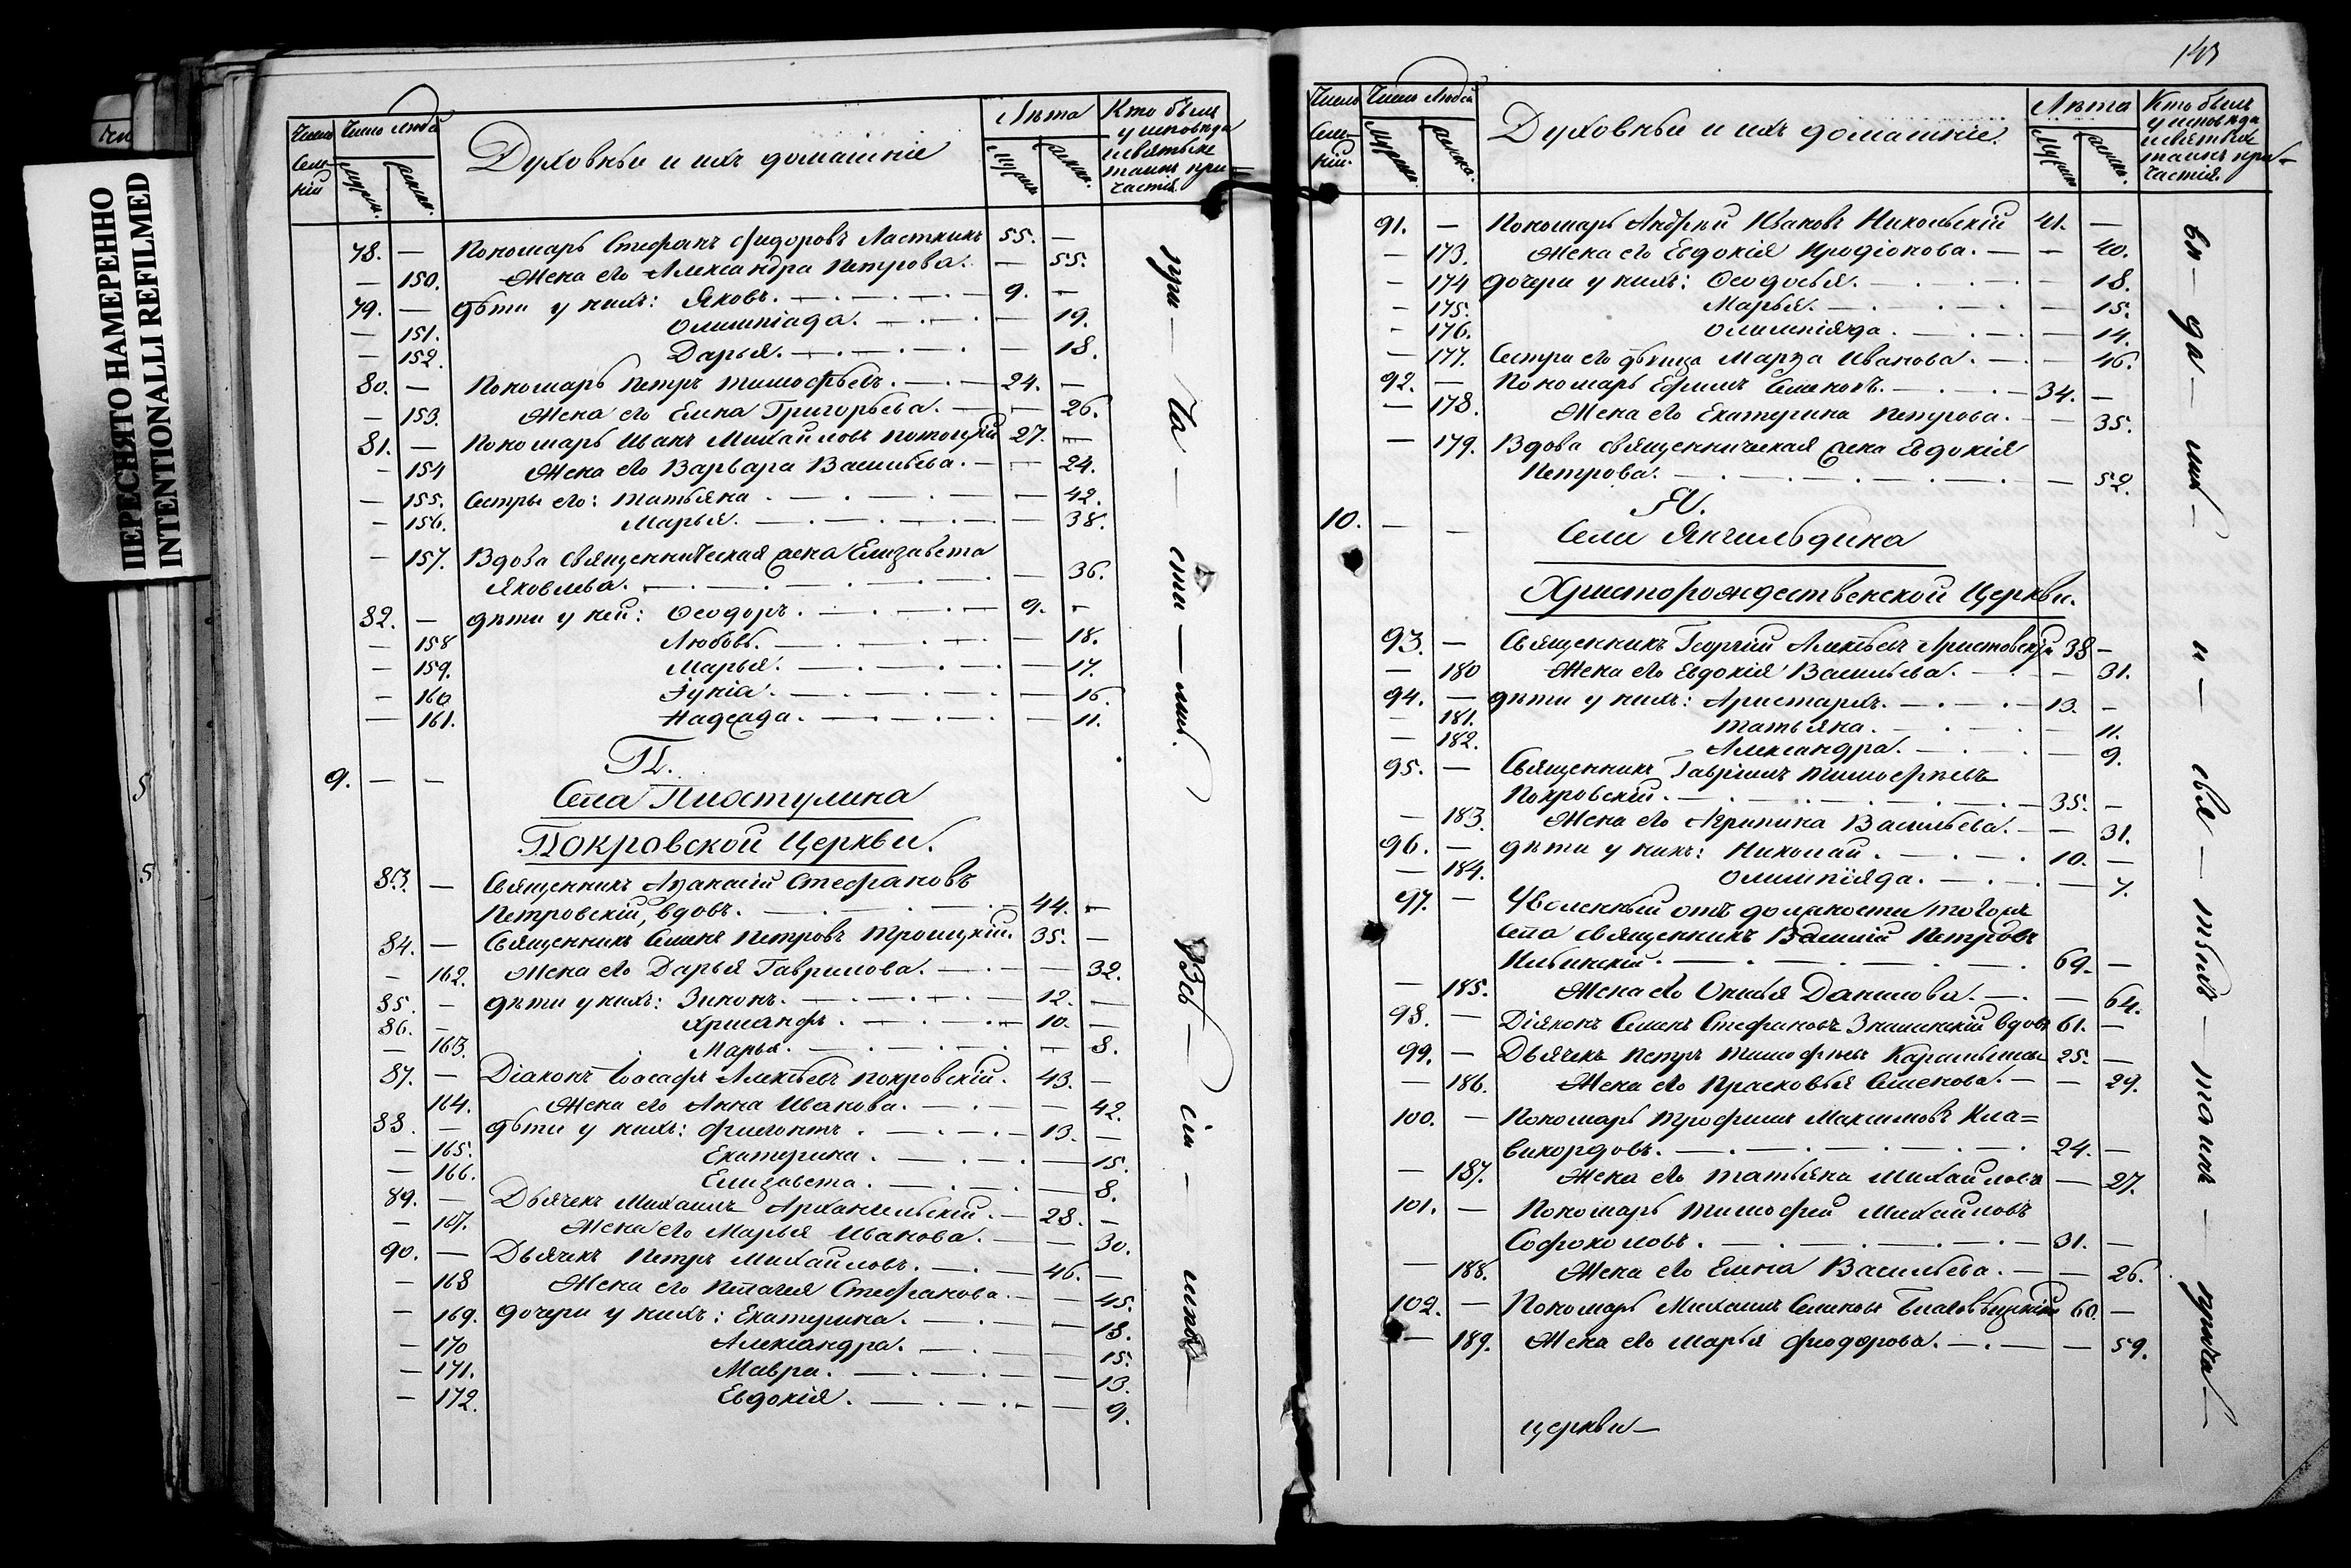 ПЕРЕСНЯТО НАМЕРЕННО
INTENTIONALLI REFILMED
5
5
Число Семей Число людей Духовныи и ихъ домашніе Лѣта Кто были у исповѣди и святыхъ таинъ причастія.
Мужеск. женск. Мужеск. женск.
78. — Пономарь Стефанъ Фидоровъ Ласткинъ 55. —
— 150. Жена его Александра Петрова. — 55.
79. — Дѣти у нихъ: Яковъ. 9. —
— 151. Олимпіада. — 19.
— 152. Дарья. — 18.
80. — Пономарь Петръ Тимофѣевъ. 24. —
— 153. Жена его Елена Григорьева. — 26.
81. — Пономарь Иванъ Михайловъ 27. —
— 154 Жена его Варвара Васильева. — 24.
— 155. Сестры его: Татьяна. — 42.
— 156. Марья. — 38.
— 157. Вдова священническая жена Елизавета
Яковлева. — 36.
82. — Дѣти у ней: Ѳеодоръ. 9. —
— 158 Любовь. — 18.
— 159. Марья. — 17.
— 160 — 16.
— 161. Надежда. — 11.
9. — —
Села Пюстулина
Покровской Церкви.
83. — Священникъ Аѳанасій Стефановъ
Петровскій, вдовъ. 44. —
84. — Священникъ Семенъ Петровъ Троицкій. 35. —
— 162. Жена его Дарья Гаврилова. — 32.
85. — Дѣти у нихъ: Зинонъ. 12. —
86. — Хрисанфъ. 10. —
— 163. Марья. — 8.
87. — Діаконъ Іоасафъ Алексѣевъ Покровскій. 43. —
164. Жена его Анна Иванова. — 42.
88. — Дѣти у нихъ: Филогонтъ. 13. —
— 165. Екатерина. — 15.
— 166. Елизавета. — 8.
89. — Дьячекъ Михаилъ Архангельскій. 28. —
— 167. Жена его Марья Иванова. — 30.
90. — Дьячекъ Петръ Михайловъ. 46. —
— 168 Жена его Пелагея Стефанова. — 45.
— 169. Дочери у нихъ: Екатерина. — 18.
— 170 Александра. — 15.
— 171. Мавра. — 13.
— 172. Евдокія. — 9.
при — ча — сти — лис.
Всѣ — сіи — испо —
143
Число Семей. Число людей Духовныи и ихъ домашніе. Лѣта Кто были у исповѣди и святыхъ таинъ причастія.
Мужеск. женск. Мужеск. женск.
91. — Пономарь Андрей Ивановъ Никольскій 41. —
— 173. Жена его Евдокія Иродіонова. — 40.
— 174 Дочери у нихъ: Ѳеодосья. — 18.
— 175. Марья. — 15.
— 176. Олимпіяда. — 14.
— 177. Сестра его дѣвица Марѳа Иванова. — 46.
92. — Пономарь Ефимъ Семеновъ. 34. —
— 178. Жена его Екатерина Петрова. — 35.
— 179. Вдова священническая жена Евдокія
Петрова. — 52.
10. — —
Села Янгильдина
Христорождественской Церкви.
93. — Священникъ Георгій Алексѣевъ Аристовскій 38 —
— 180 Жена его Евдокія Васильева. — 31.
94. — Дѣти у нихъ: Аристархъ. 13. —
— 181. Татьяна. — 11.
— 182. Александра. — 9.
95. — Священникъ Гавріилъ Тимофѣевъ
Покровскій. 35. —
— 183. Жена его Агрипина Васильева. — 31.
96. — Дѣти у нихъ: Николай. 10. —
— 184. Олимпіяда. — 7.
97. — Уволенный отъ должности тогожъ
Села священникъ Василій Петровъ
Ильинскій. 69. —
— 185. Жена его Данилова. — 64.
98. — Діяконъ Семенъ Стефановъ Знаменскій вдовъ 61. —
99. — Дьячекъ Петръ Тимофѣевъ 25. —
— 186. Жена его Прасковья Семенова. — 29.
100. — Пономарь Трофимъ Максимовъ Кла=
викордовъ. 24. —
— 187. Жена его Татьяна Михайлова — 27.
101. — Пономарь Тимофей Михайловъ
Софокловъ. 31. —
— 188. Жена его Елена Васильева. — 26.
102. — Пономарь Михаилъ Семеновъ 60. —
— 189. Жена его Марья Феодорова. — 59.
вѣ — да — лис —
и — свя — тыхъ — таинъ — прича —
церкви —